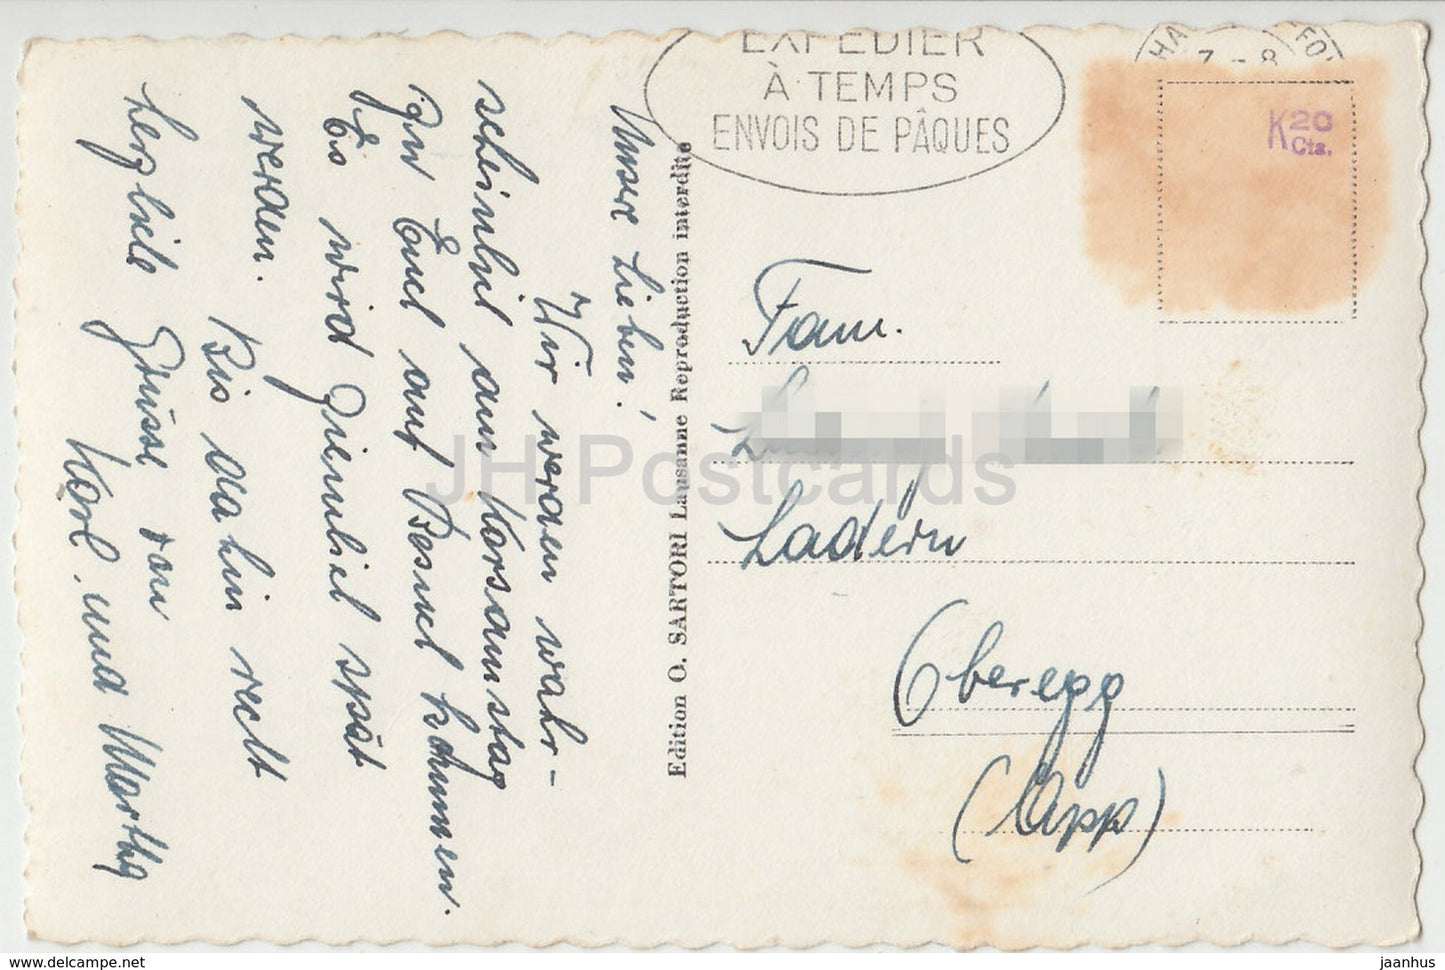 EXPEDIER
À TEMPS
ENVOIS DE PÂQUES
HA
FO
7 - 8
K 20 Cts.
Unsere Lieben!
Wir werden wahr-
scheinlich am Karsamstag
zu Euch auf Besuch kommen.
Es wird ziemlich spät
werden. Bis dahin recht
herzliche Grüsse von
Karl und Marthy
Edition O. SARTORI Lausanne Reproduction interdite
Fam.
Ladern
Oberegg
(App)
JH Postcards
www.delcampe.net
jaanhus